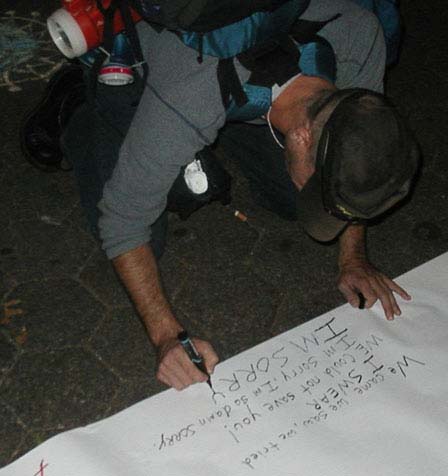 We came we saw we tried
I SWEAR
WE could not save you!
I'm sorry. I'm so damn sorry.
I'M SORRY